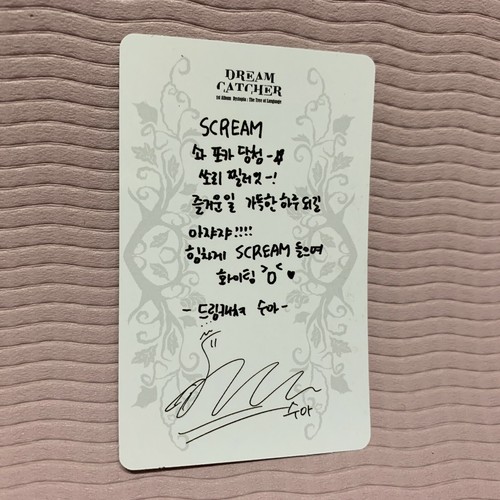 DREAM
CATCHER
1st Album Dystopia : The Tree of Language
SCREAM
솨 포카 당첨-☆
쏘리 찔러잇-!
즐거운일 가득한하루되길
아쟈쟈!!!!
힘차게 SCREAM 들으며
화이팅 >0< ♥
- 드림캐쳐 수아 -
수아